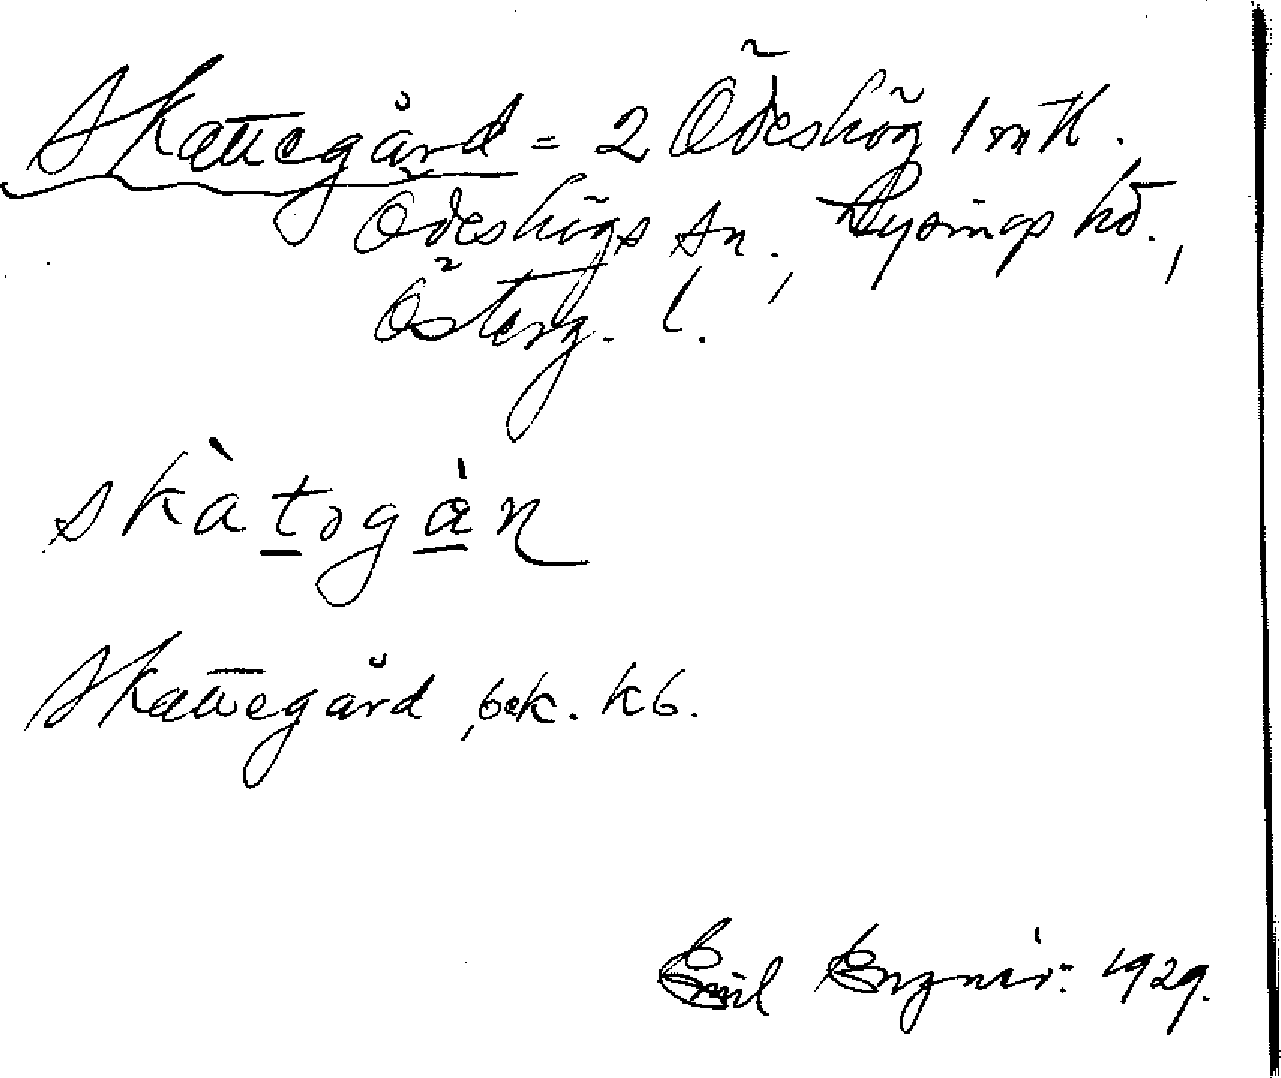 Skattegård = 2 Ödeshög 1 mtl.
Ödeshögs sn., Lysings hd.,
Österg. l.
skàtəgàn
Skattegård, bek. kb.
Emil 1929.